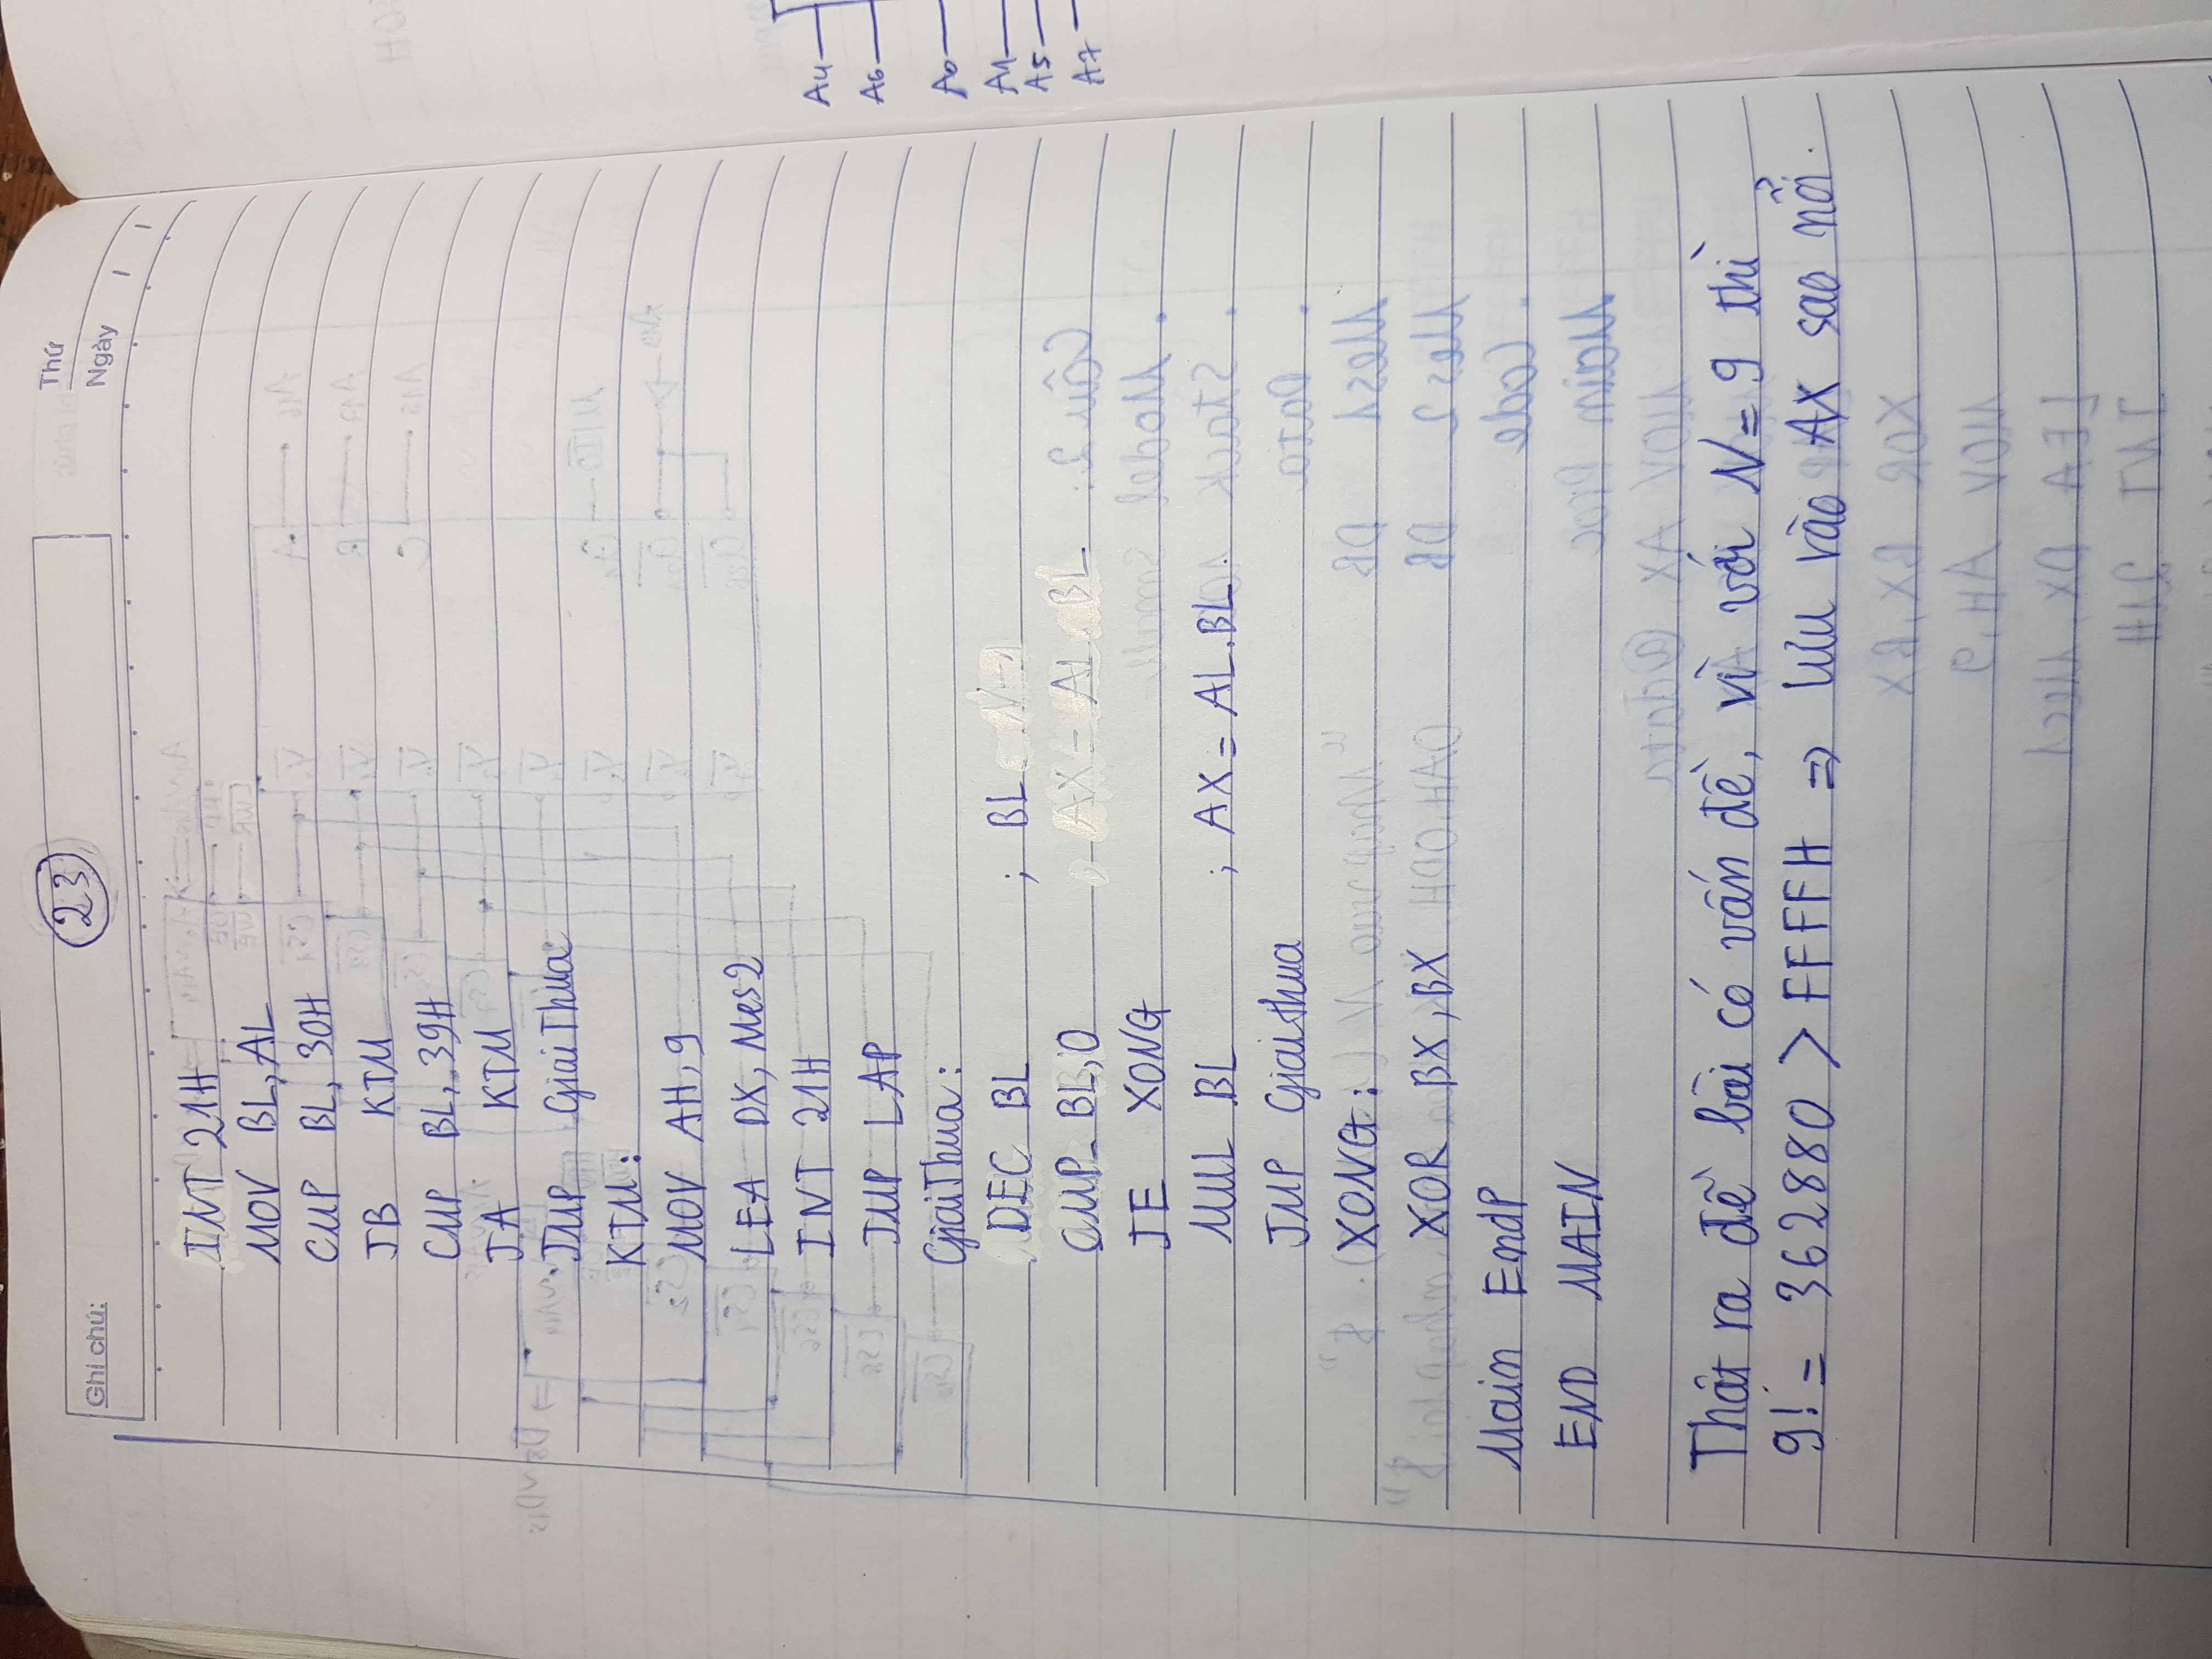 Ghi chú:
23
Thứ
Ngày
INT 21H
MOV BL, AL
CMP BL, 30H
JB KTM
CMP BL, 39H
JA KTM
JMP GiaiThua
KTM:
MOV AH, 9
LEA DX, Mes2
INT 21H
JMP LAP
GiaiThua:
DEC BL ; BL
CMP BL, 0 , AX = AL. BL
JE XONG
MUL BL ; AX = AL.BL.
JMP Giaithua
XONG:
XOR BX, BX
Main EndP
END MAIN
Thật ra đề bài có vấn đề, vì với N = 9 thì
9! = 362880 > FFFFH => lưu vào AX sao nổi.
A4
A6
A0
A1
A5
A7